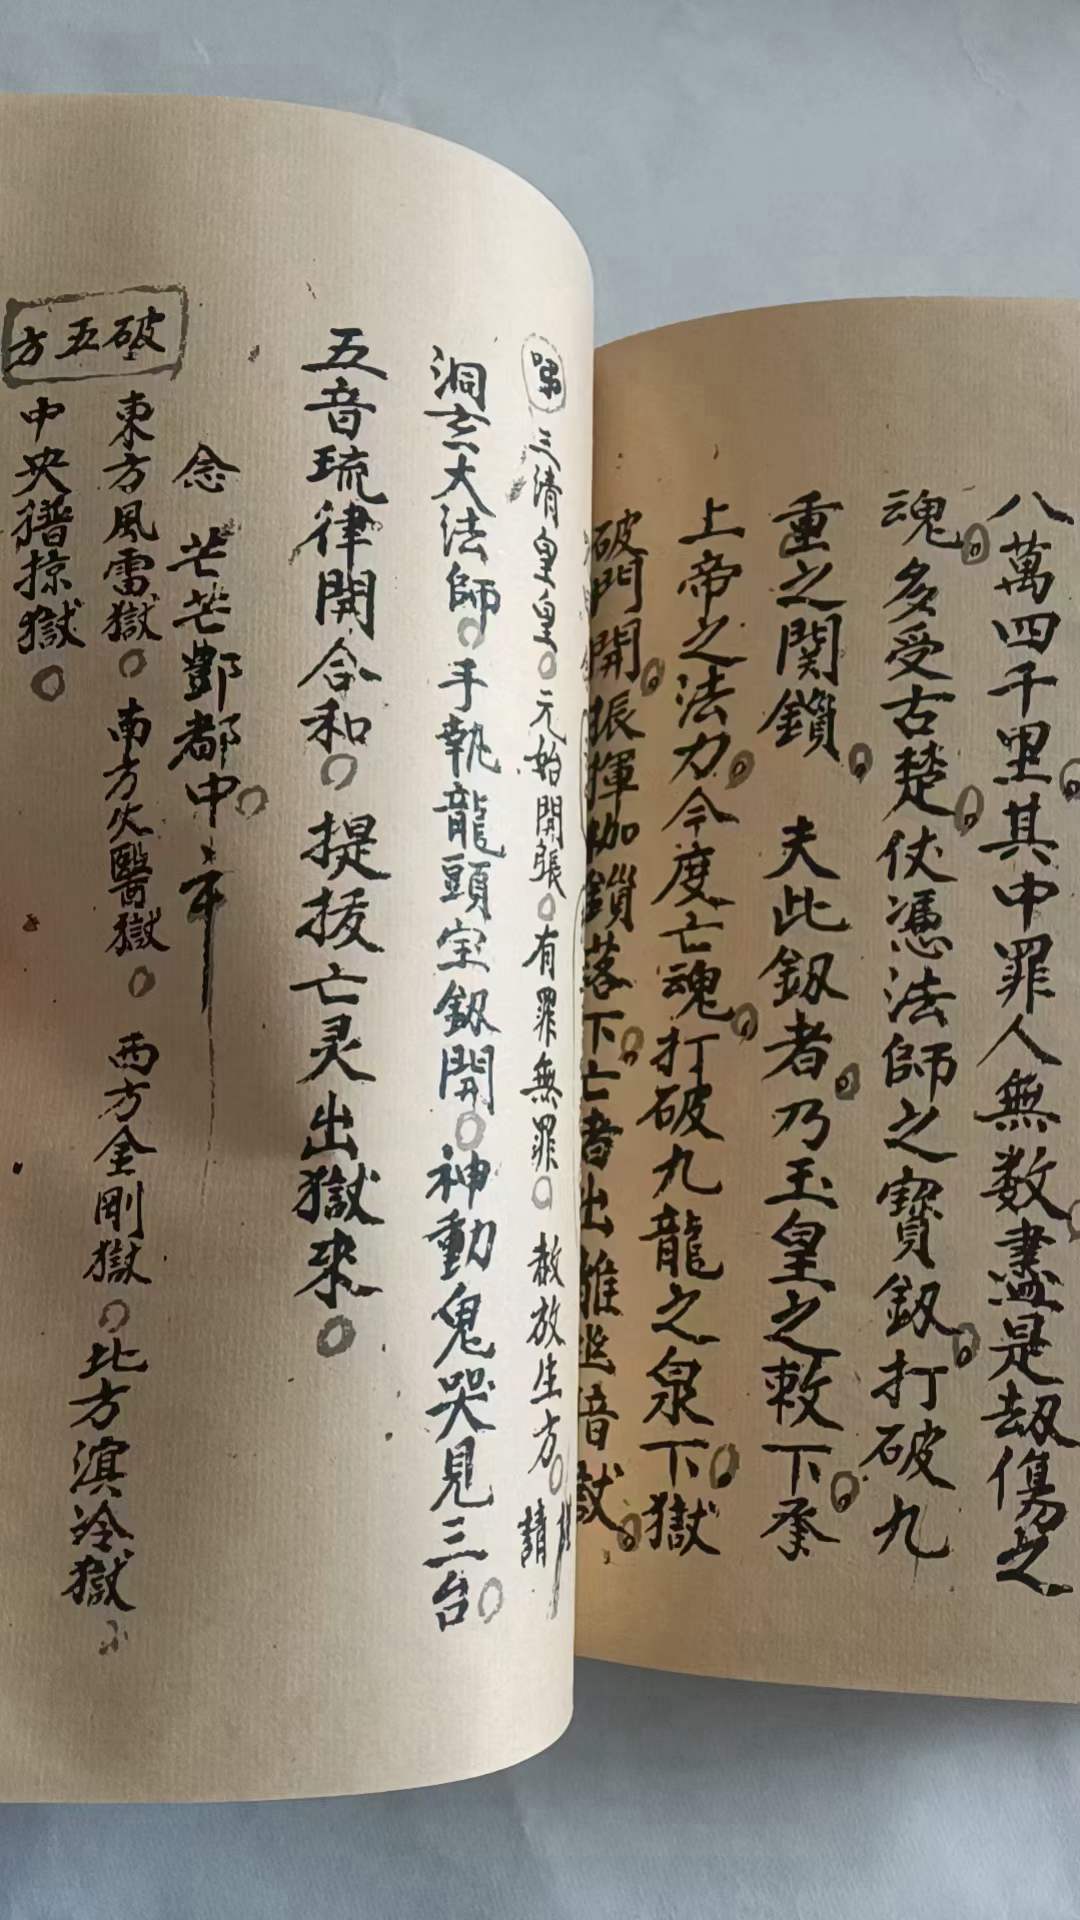 八萬四千里其中罪人無数盡是劫傷之
魂多受古楚仗憑法師之寶釼打破九
重之関鎖 夫此釼者乃玉皇之敕下奉
上帝之法力今度亡魂打破九龍之泉下獄
破門開振揮枷鎖落下亡者出離
三清皇皇元始開張有罪無罪赦放生方請
洞玄大法師手執龍頭宝釼開神動鬼哭見三台
五音琉律開合和提拔亡灵出獄來
念 芒芒酆都中
破五方
東方風雷獄南方火醫獄 西方金剛獄北方溟冷獄
中央掠獄